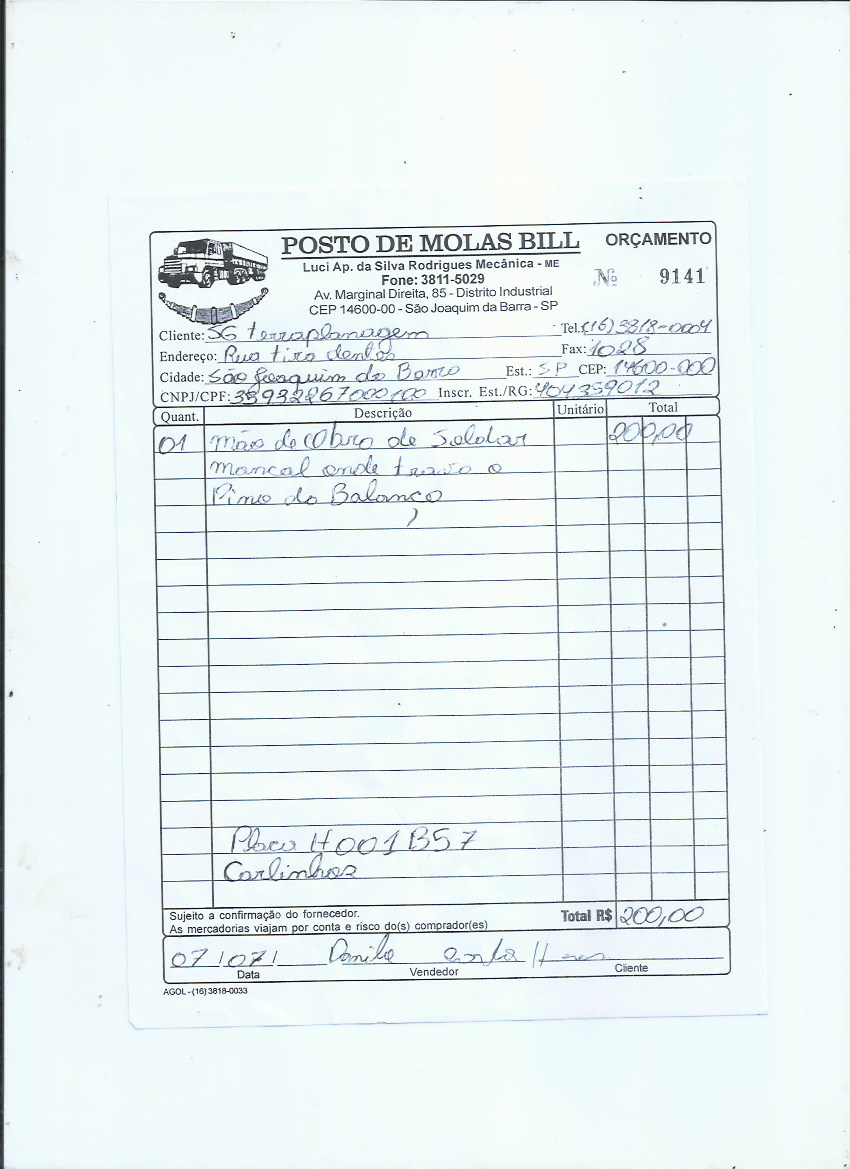 POSTO DE MOLAS BILL
ORÇAMENTO
Luci Ap. da Silva Rodrigues Mecânica - ME
Fone: 3811-5029
Nº 9141
Av. Marginal Direita, 85 - Distrito Industrial
CEP 14600-00 - São Joaquim da Barra - SP
Cliente: SG terraplanagem Tel.: (16) 3818-0004
Endereço: Rua tira dentes Fax: 1028
Cidade: São Joaquim da Barra Est.: SP CEP: 14600-000
CNPJ/CPF: Inscr. Est./RG: 404359012
Quant. Descrição Unitário Total
01 Mão de Obra de Soldar 200,00
mancal onde trava o
Pino do Balanço
Placa H001B57
Carlinhos
Sujeito a confirmação do fornecedor.
As mercadorias viajam por conta e risco do(s) comprador(es)
Total R$ 200,00
07/07/ Danilo
Data Vendedor Cliente
AGOL - (16) 3818-0033